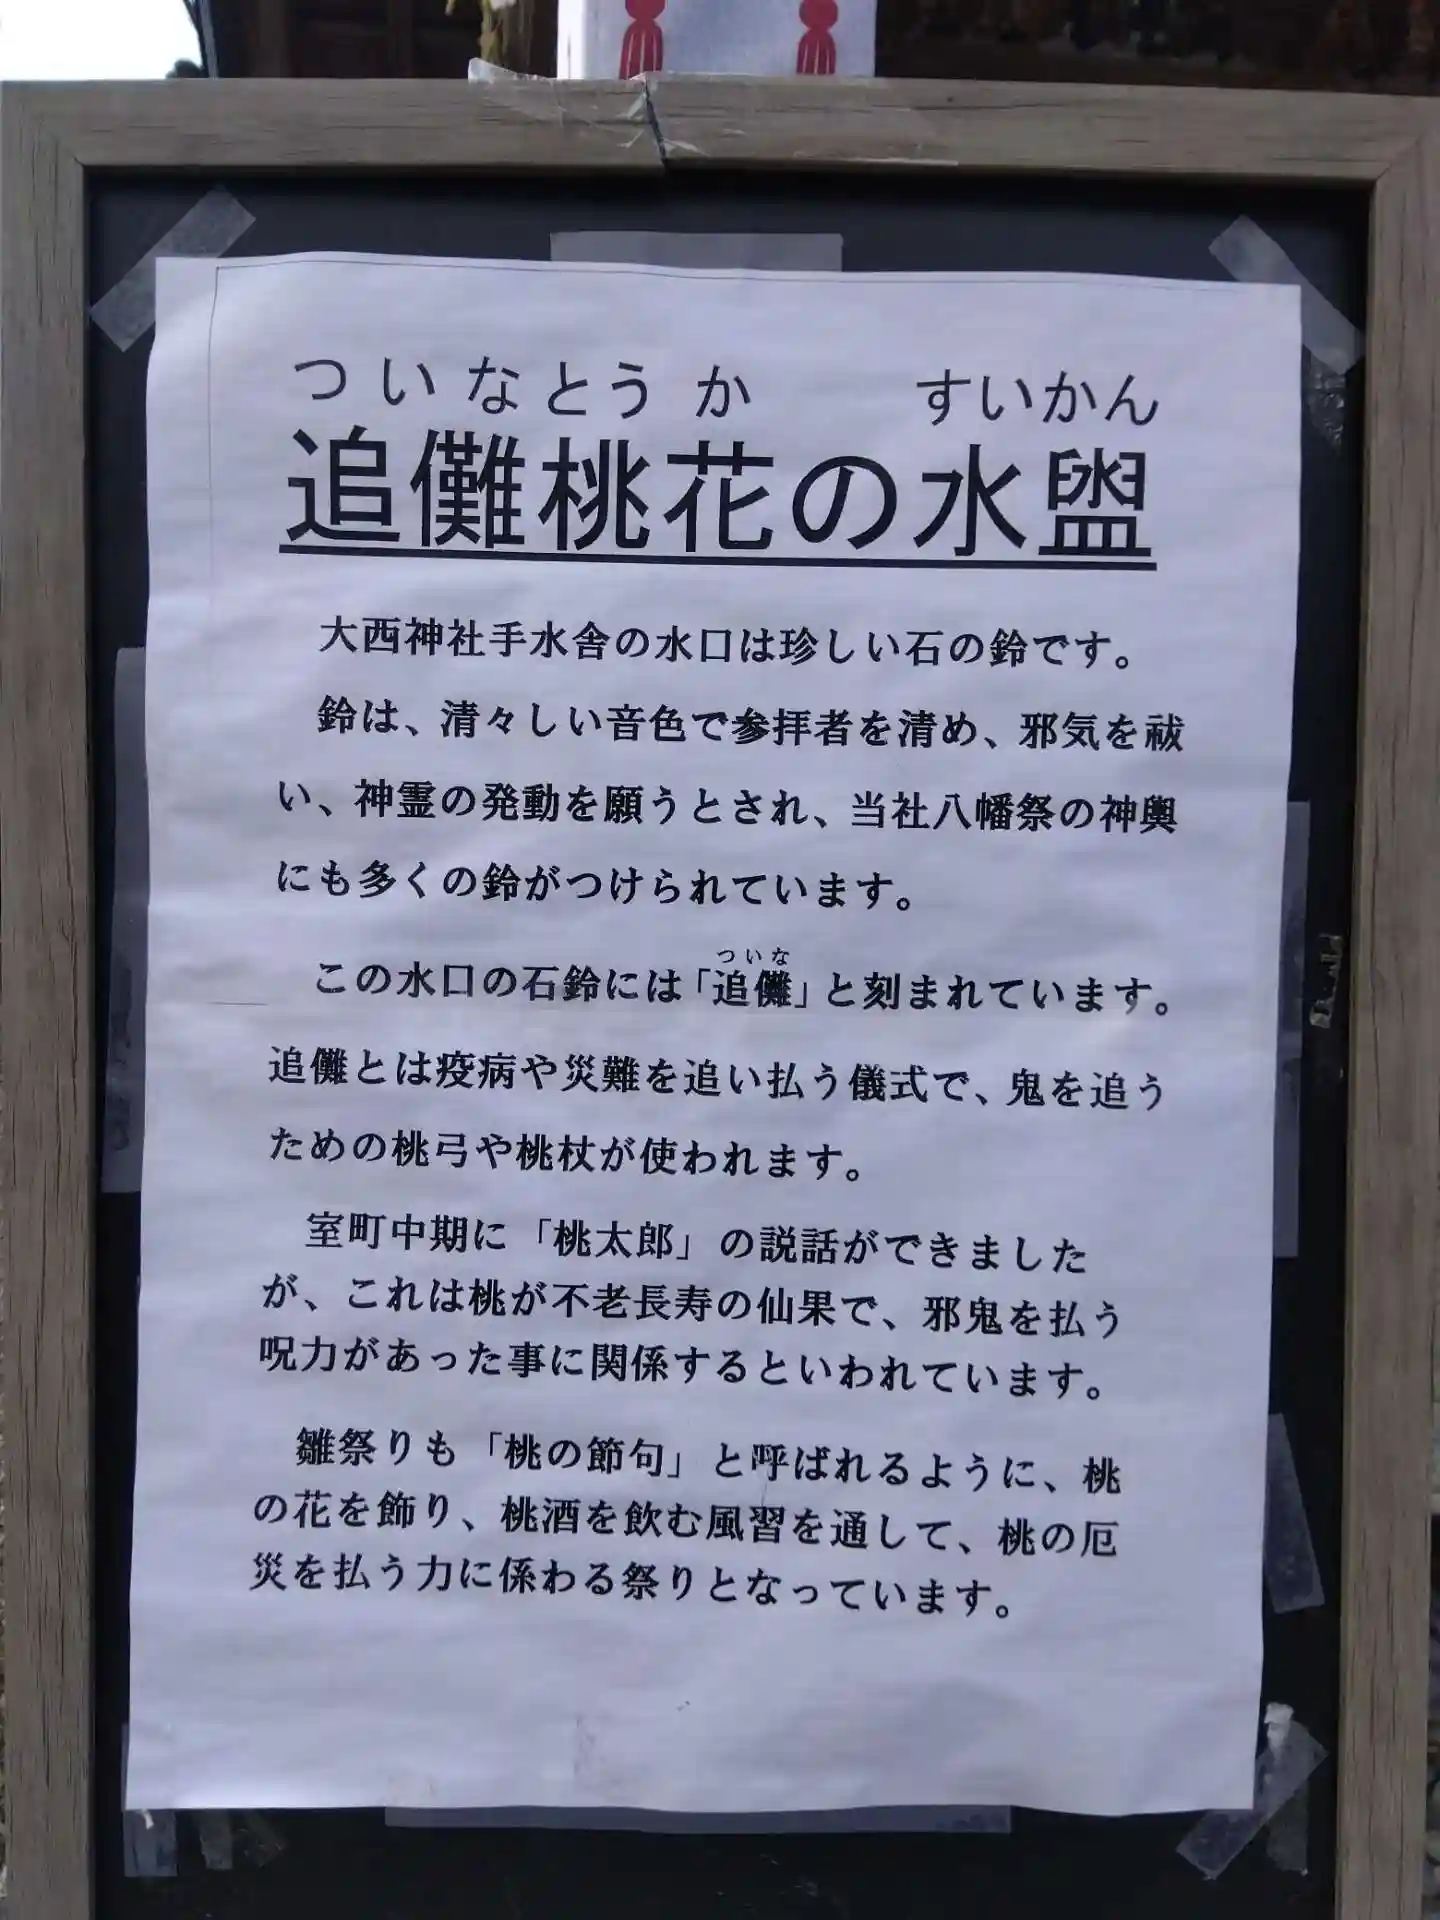 ついなとうか すいかん
追儺桃花の水盥
大西神社手水舎の水口は珍しい石の鈴です。
鈴は、清々しい音色で参拝者を清め、邪気を祓
い、神霊の発動を願うとされ、当社八幡祭の神輿
にも多くの鈴がつけられています。
ついな
この水口の石鈴には「追儺」と刻まれています。
追儺とは疫病や災難を追い払う儀式で、鬼を追う
ための桃弓や桃杖が使われます。
室町中期に「桃太郎」の説話ができました
が、これは桃が不老長寿の仙果で、邪鬼を払う
呪力があった事に関係するといわれています。
雛祭りも「桃の節句」と呼ばれるように、桃
の花を飾り、桃酒を飲む風習を通して、桃の厄
災を払う力に係わる祭りとなっています。